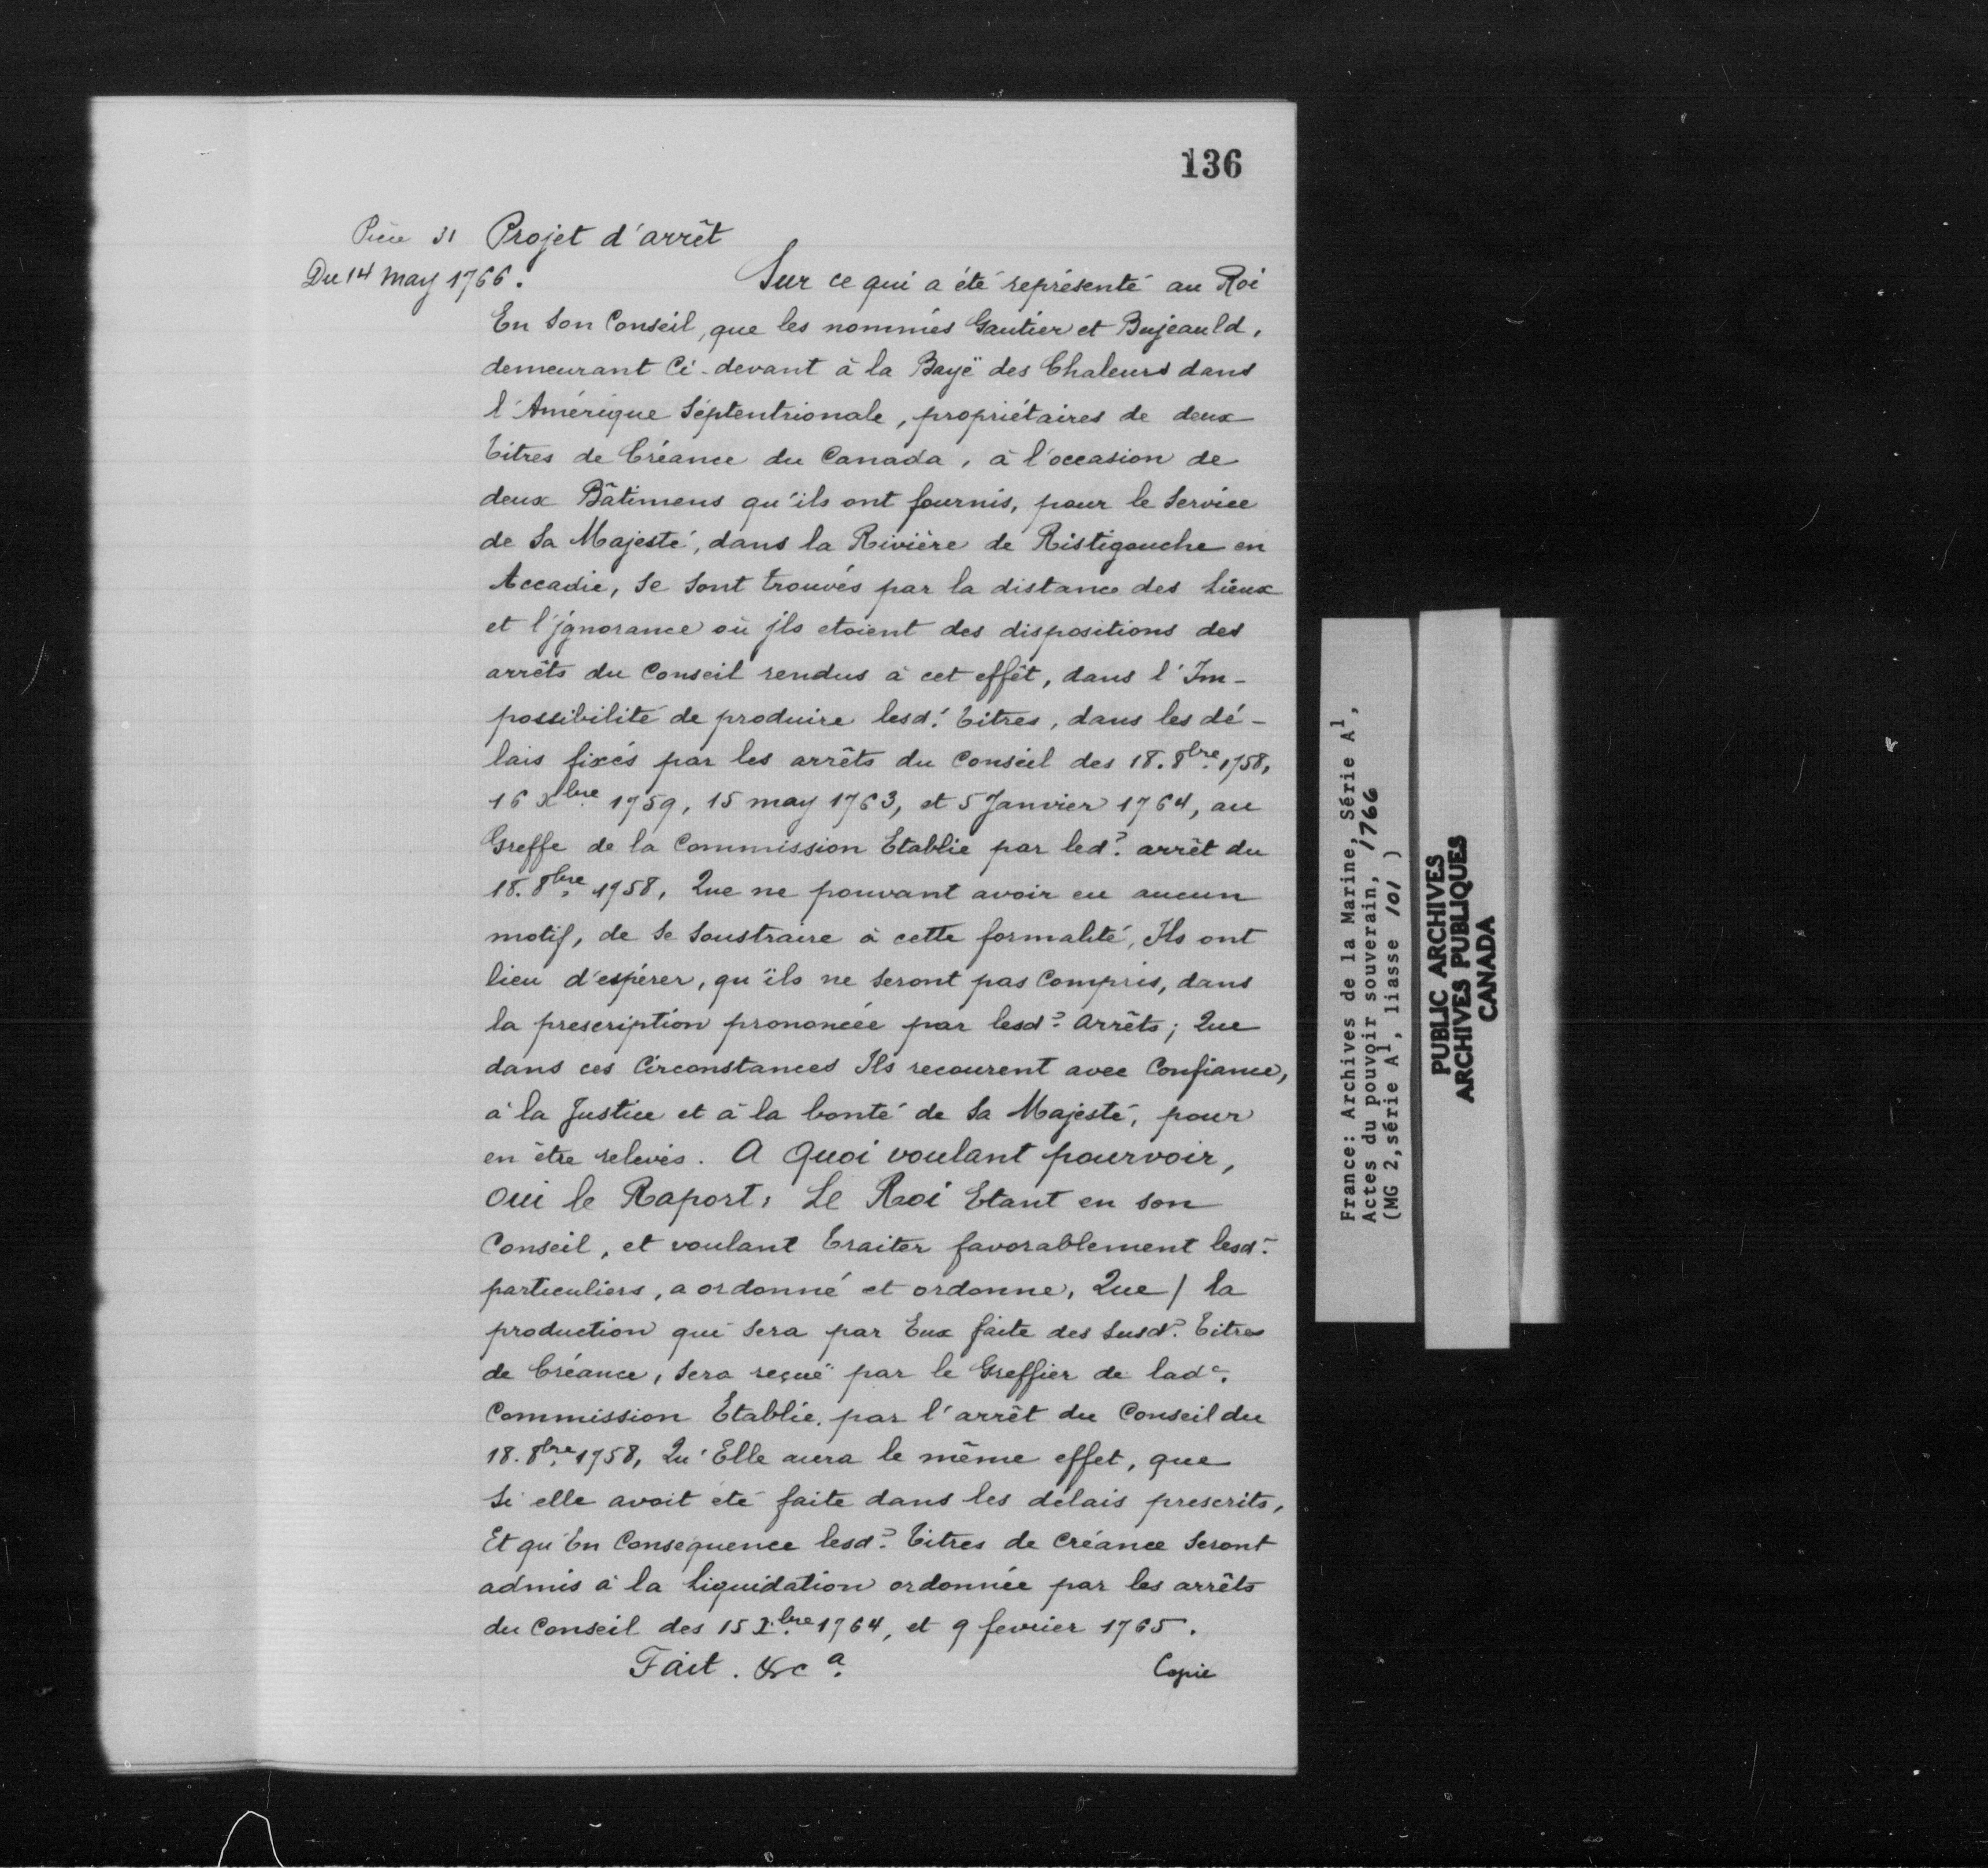 136
Pièce 31 Projet d'arrêt
Du 14 may 1766.
Sur ce qui a été représenté au Roi
En Son Conseil, que les nommés Gautier et Bujeauld,
demeurant Ci-devant à la Bayë des Chaleurs dans
l'Amérique Séptentrionale, propriétaires de deux
titres de Créance du Canada, à l'occasion de
deux Bâtimens qu'ils ont fournis, pour le Service
de Sa Majesté, dans la Rivière de Ristigouche en
Accadie, Se Sont trouvés par la distance des Lieux
et l'jgnorance où jls etoient des dispositions des
arrêts du Conseil rendus à cet effêt, dans l'Im-
possibilité de produire lesd. titres, dans les dé-
lais fixés par les arrêts du Conseil des 18. 8bre. 1758,
16 Xbre 1759, 15 may 1763, et 5 Janvier 1764, au
Greffe de la Commission Etablie par led. arrêt du
18. 8bre. 1758, Que ne pouvant avoir eu aucun
motif, de Se Soustraire à cette formalité, Ils ont
lieu d'espérer, qu'ils ne Seront pas Compris, dans
la prescription prononcée par lesd. Arrêts; Que
dans ces Circonstances Ils recourent avec Confiance,
à la Justice et à la bonté de Sa Majesté, pour
en être relevés. A Quoi voulant pourvoir,
Oui le Raport, Le Roi Etant en son
Conseil, et voulant traiter favorablement lesd.
particuliers, a ordonné et ordonne, Que / la
production qui Sera par Eux faite des Susd. titres
de Créance, Sera reçuë par le Greffier de lade.
Commission Etablie par l'arrêt du Conseil du
18. 8bre. 1758, Qu'Elle aura le même effet, que
Si elle avoit été faite dans les délais prescrits,
Et qu'En Conséquence lesd. titres de Créance Seront
admis à la liquidation ordonnée par les arrêts
du Conseil des 15 Xbre. 1764, et 9 fevrier 1765.
Fait. &ca.
Copie
France: Archives de la Marine, Série A1,
Actes du pouvoir souverain, 1766
(MG 2, série A1, liasse 101 )
PUBLIC ARCHIVES
ARCHIVES PUBLIQUES
CANADA